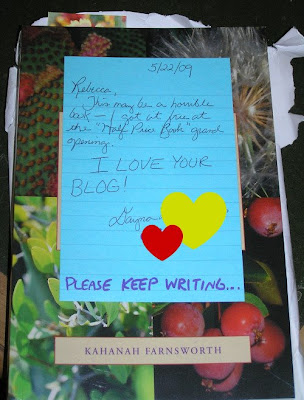 5/22/09
Rebecca,
This may be a horrible
book — I got it free at
the "Half Price Book" grand
opening.
I LOVE YOUR
BLOG!
PLEASE KEEP WRITING...
KAHANAH FARNSWORTH